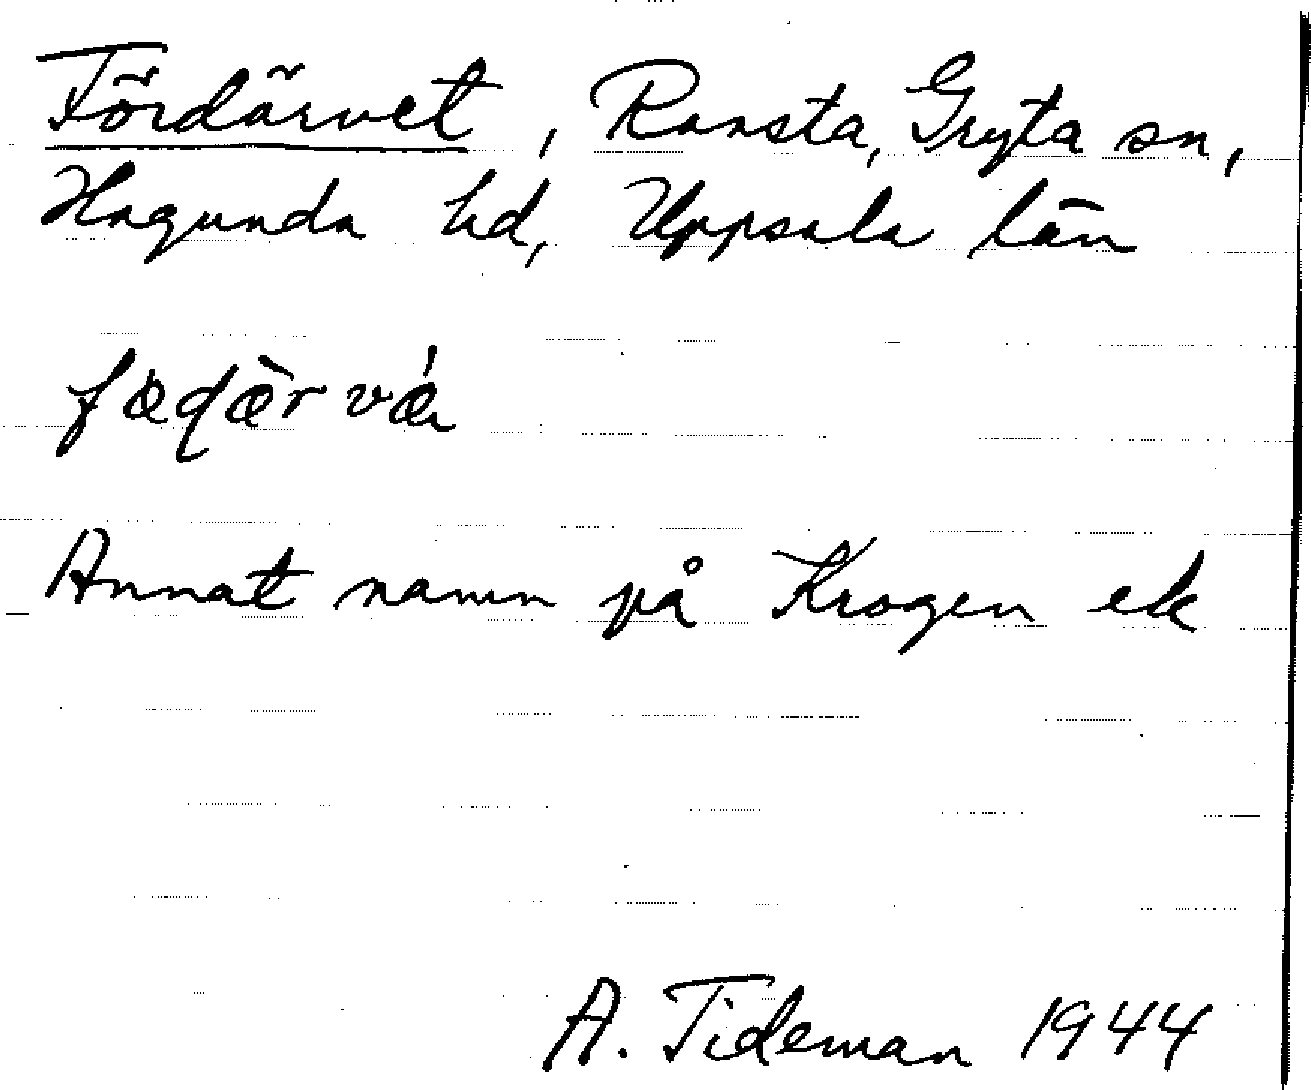 Fördärvet, Ransta, Gryta sn,
Hagunda hd, Uppsala län
Annat namn på Krogen ek
A. Tideman 1944